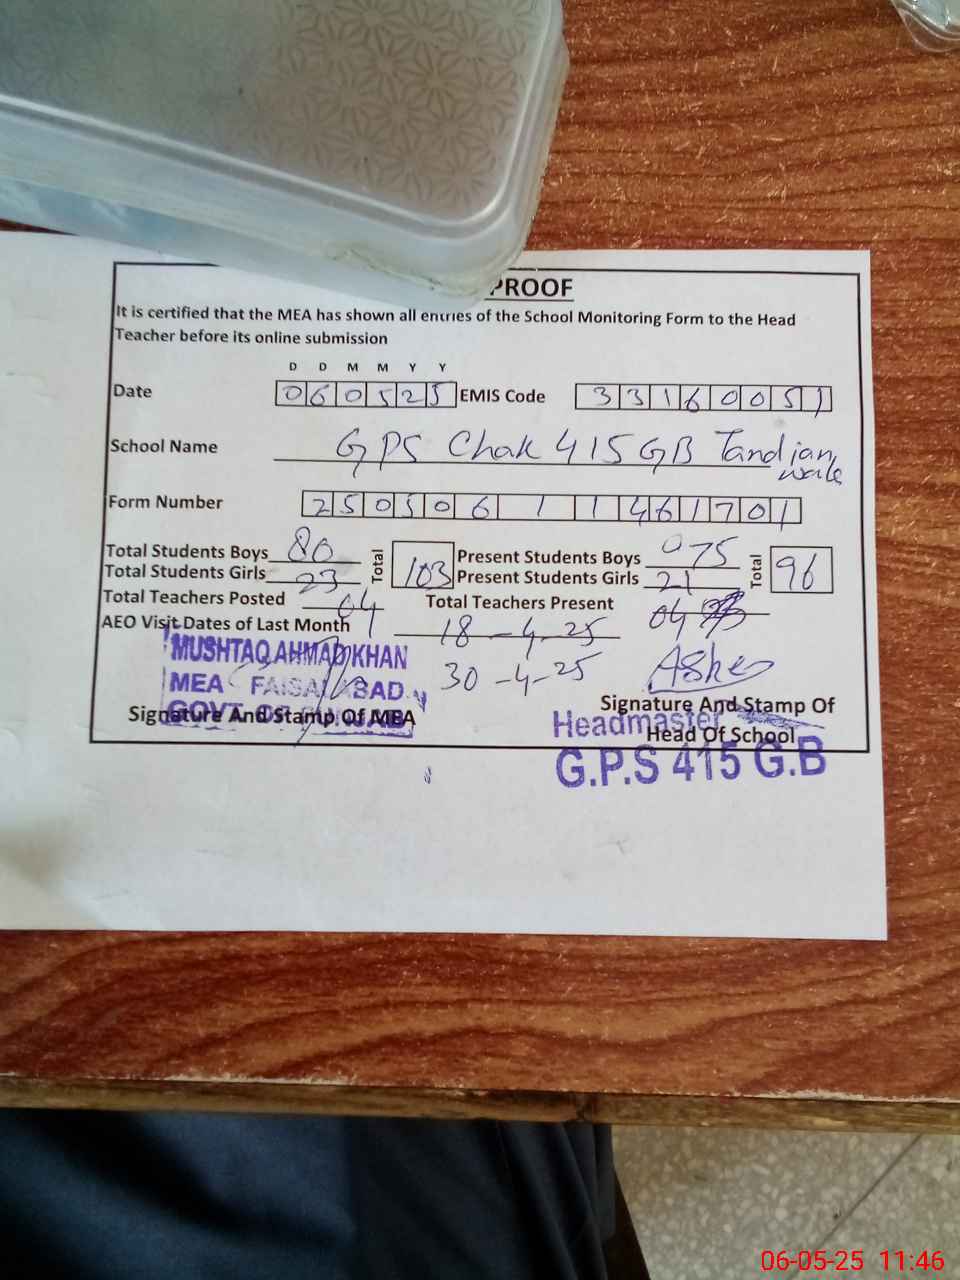 PROOF
It is certified that the MEA has shown all entries of the School Monitoring Form to the Head
Teacher before its online submission
D D M M Y Y
Date 060525 EMIS Code 33160051
School Name GPS Chak 415 GB Tandian
wala
Form Number 250506 1 1461701
Total Students Boys 80 Total 103 Present Students Boys 075 Total 96
Total Students Girls 23 Present Students Girls 21
Total Teachers Posted 04 Total Teachers Present 04
AEO Visit Dates of Last Month 18-4-25
30-4-25
MUSHTAQ AHMAD KHAN
MEA FAISALABAD
GOVT OF PUNJAB
Signature And Stamp Of MEA
Signature And Stamp Of
Head Of School
Headmaster
G.P.S 415 G.B
06-05-25 11:46